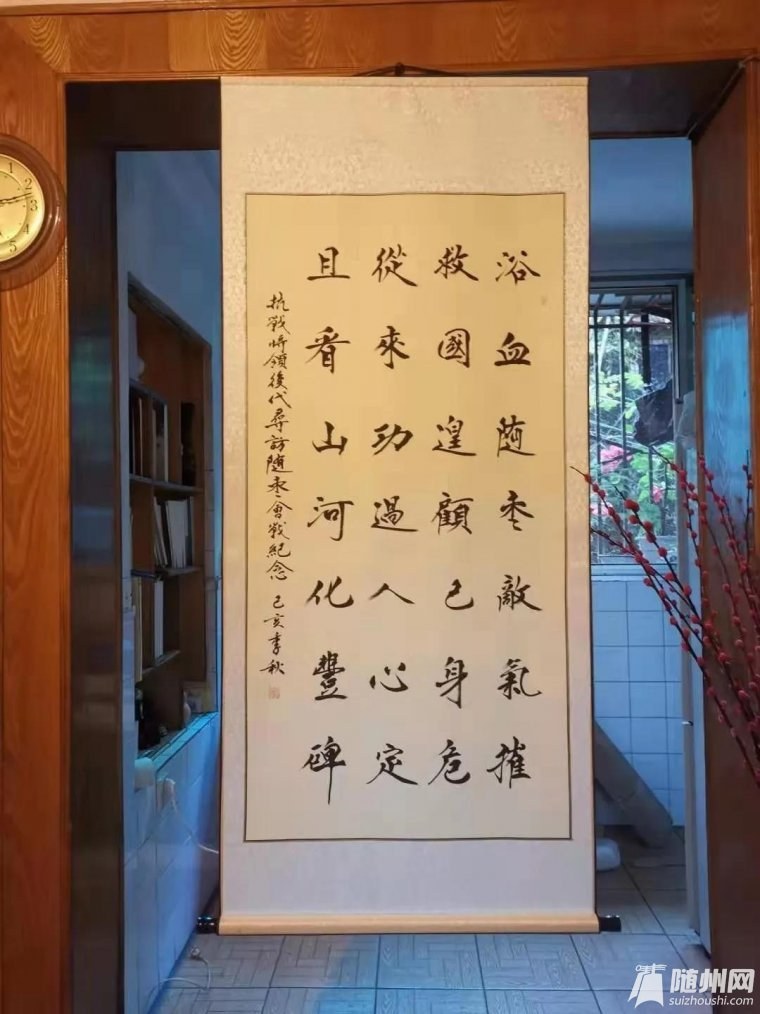 浴血随枣敵氣摧
救國遑顧己身危
從來功過人心定
且看山河化豐碑
抗戰将領後代尋訪隨枣會戰紀念 己亥季秋
1
2
3
随州网
suizhoushi.com